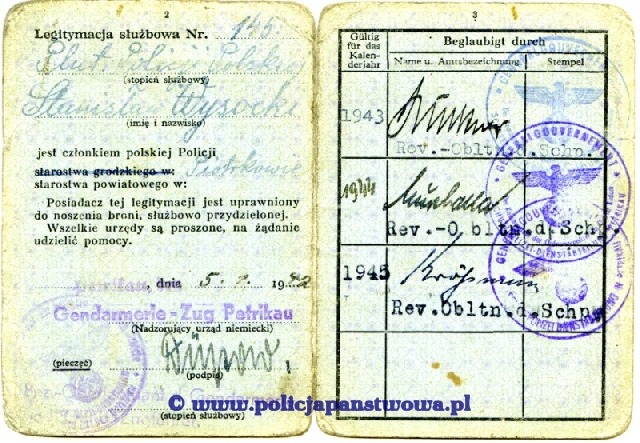 2
Legitymacja służbowa Nr. 145
Plut. Policji Polskiej
(stopień służbowy)
Stanisław Wysocki
(imię i nazwisko)
jest członkiem polskiej Policji
starostwa grodzkiego w: Piotrkowie
starostwa powiatowego w:
Posiadacz tej legitymacji jest uprawniony
do noszenia broni, służbowo przydzielonej.
Wszelkie urzędy są proszone, na żądanie
udzielić pomocy.
Petrikau, dnia 5. 2. 1942
Gendarmerie-Zug Petrikau
(Nadzorujący urząd niemiecki)
(pieczęć)
(podpis)
(stopień służbowy)
3
Gültig für das Kalenderjahr
Beglaubigt durch
Name u. Amtsbezeichnung
Stempel
1943
Rev.-Obltn.d.Schp.
1944
Rev.-O.bltn.d.Schp.
1945
Rev.Obltn.d.Schp.
GENERALGOUVERNEMENT
© www.policjapanstwowa.pl